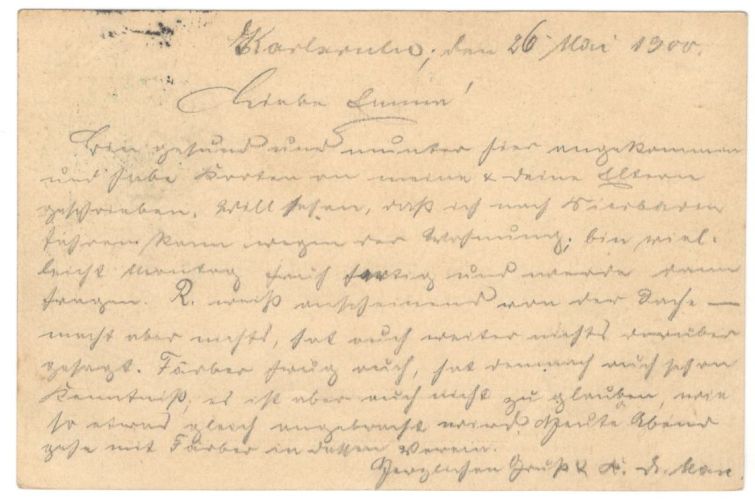 Karlsruhe, den 26 Mai 1900.
Liebe Emma!
Bin gesund und munter hier angekommen
und habe Karten an meine & deine Eltern
geschrieben. Will sehen, daß ich nach
fahren kann wegen der Wohnung; bin viel-
leicht Montag früh fertig und werde dann
fragen. R. weiß anscheinend von der Sache —
macht aber nichts, hat auch weiter nichts darüber
gesagt. Färber frug auch, hat demnach auch schon
Kenntniß, es ist aber auch nicht zu glauben, wie
so etwas gleich angebracht wird. Heute Abend
gehe mit Färber in dessen Verein.
Herzlichen Gruß & K. d. Max.